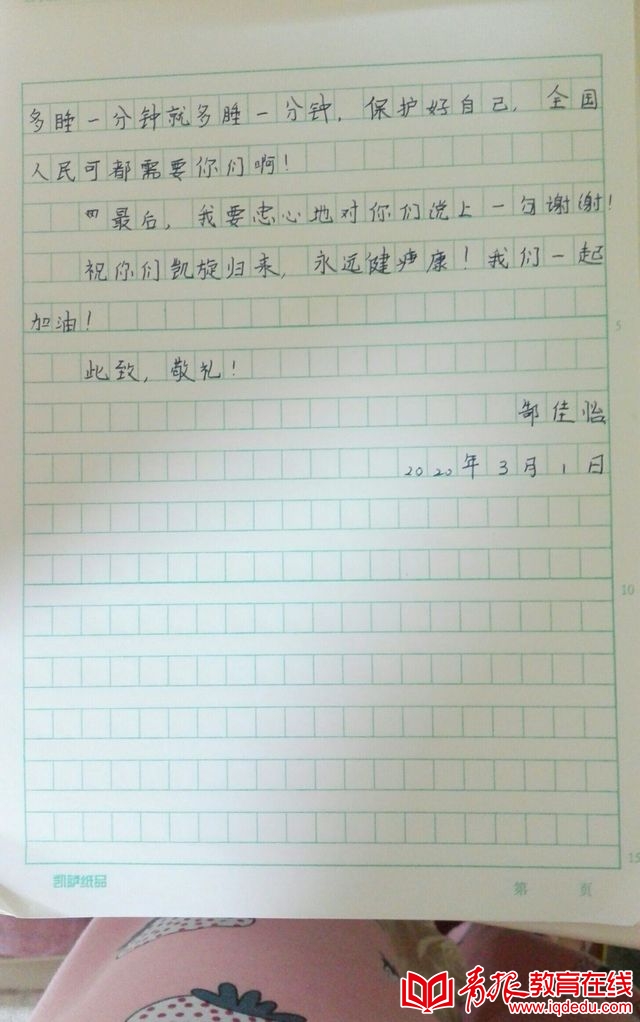 多睡一分钟就多睡一分钟，保护好自己，全国
人民可都需要你们啊！
最后，我要忠心地对你们说上一句谢谢！
祝你们凯旋归来，永远健康！我们一起
加油！
此致，敬礼！
郜佳怡
2020年3月1日
5
10
15
凯萨纸品
第 页
青报教育在线
www.iqdedu.com